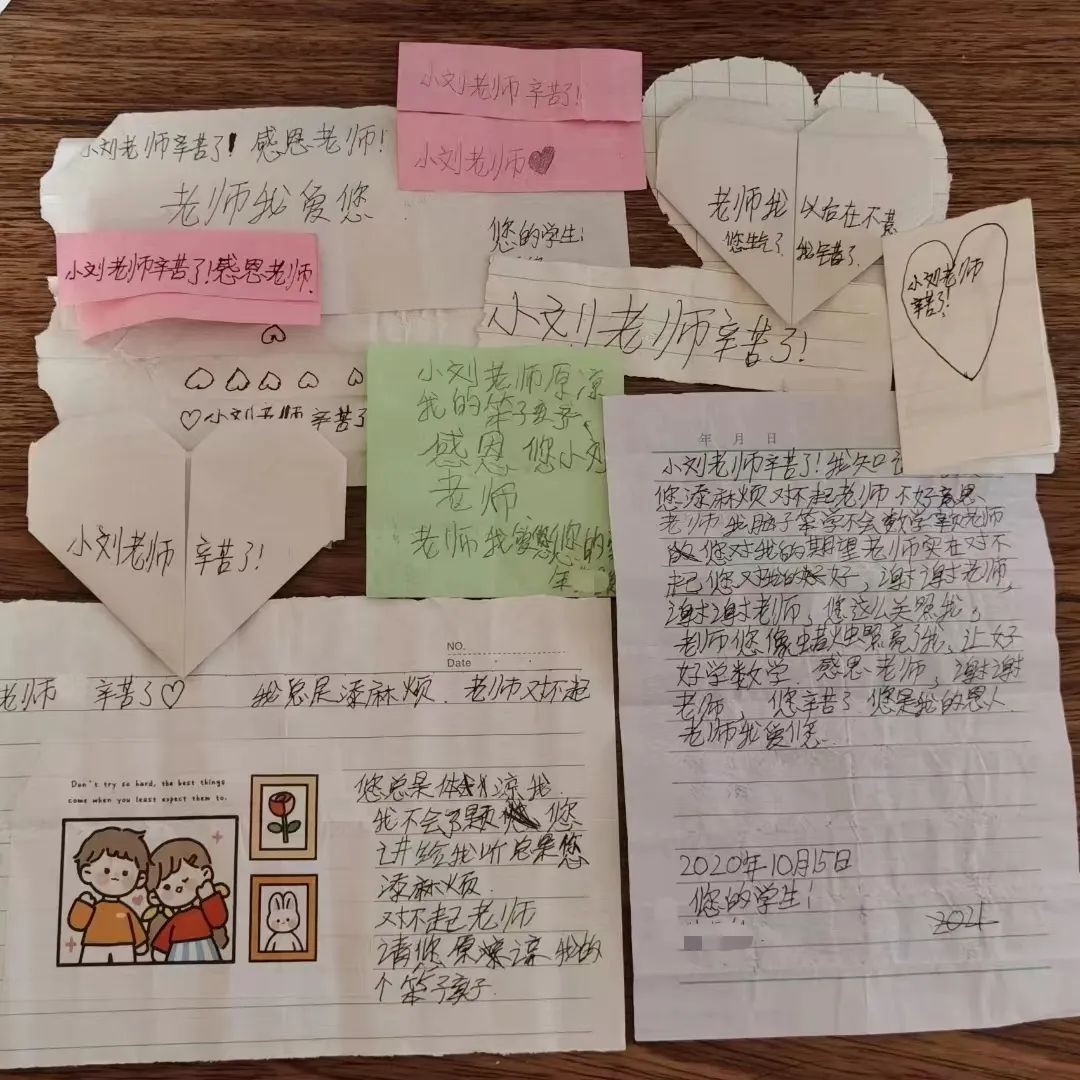 小刘老师辛苦了!
小刘老师
小刘老师辛苦了! 感恩老师!
老师我爱您
您的学生!
小刘老师辛苦了!感恩老师.
小刘老师辛苦了
老师我 以后在不惹
您生气了 我
小刘老师
辛苦了!
小刘老师辛苦了!
小刘老师原凉
我的笨子
感恩 您小刘
老师
老师我爱您您的
小刘老师 辛苦了!
年 月 日
小刘老师辛苦了!我知
您添麻烦对不起老师不好意思
老师我脑子笨学不会数学 老师
您对我的期望老师实在对不
起您对我的好,谢谢老师,
谢谢老师,您这么关照我,
老师您像蜡烛照亮了我,让好
好学数学 感恩老师,谢谢
老师,您辛苦了 您是我的恩人
老师我爱您
2020年10月15日
您的学生!
2021
NO.
Date
老师 辛苦了 我总是添麻烦. 老师对不起
Don't try so hard, the best things
come when you least expect them to.
您总是体凉我.
我不会了题 您
讲给我听总是您
添麻烦.
对不起老师
请您原凉我的
个笨子